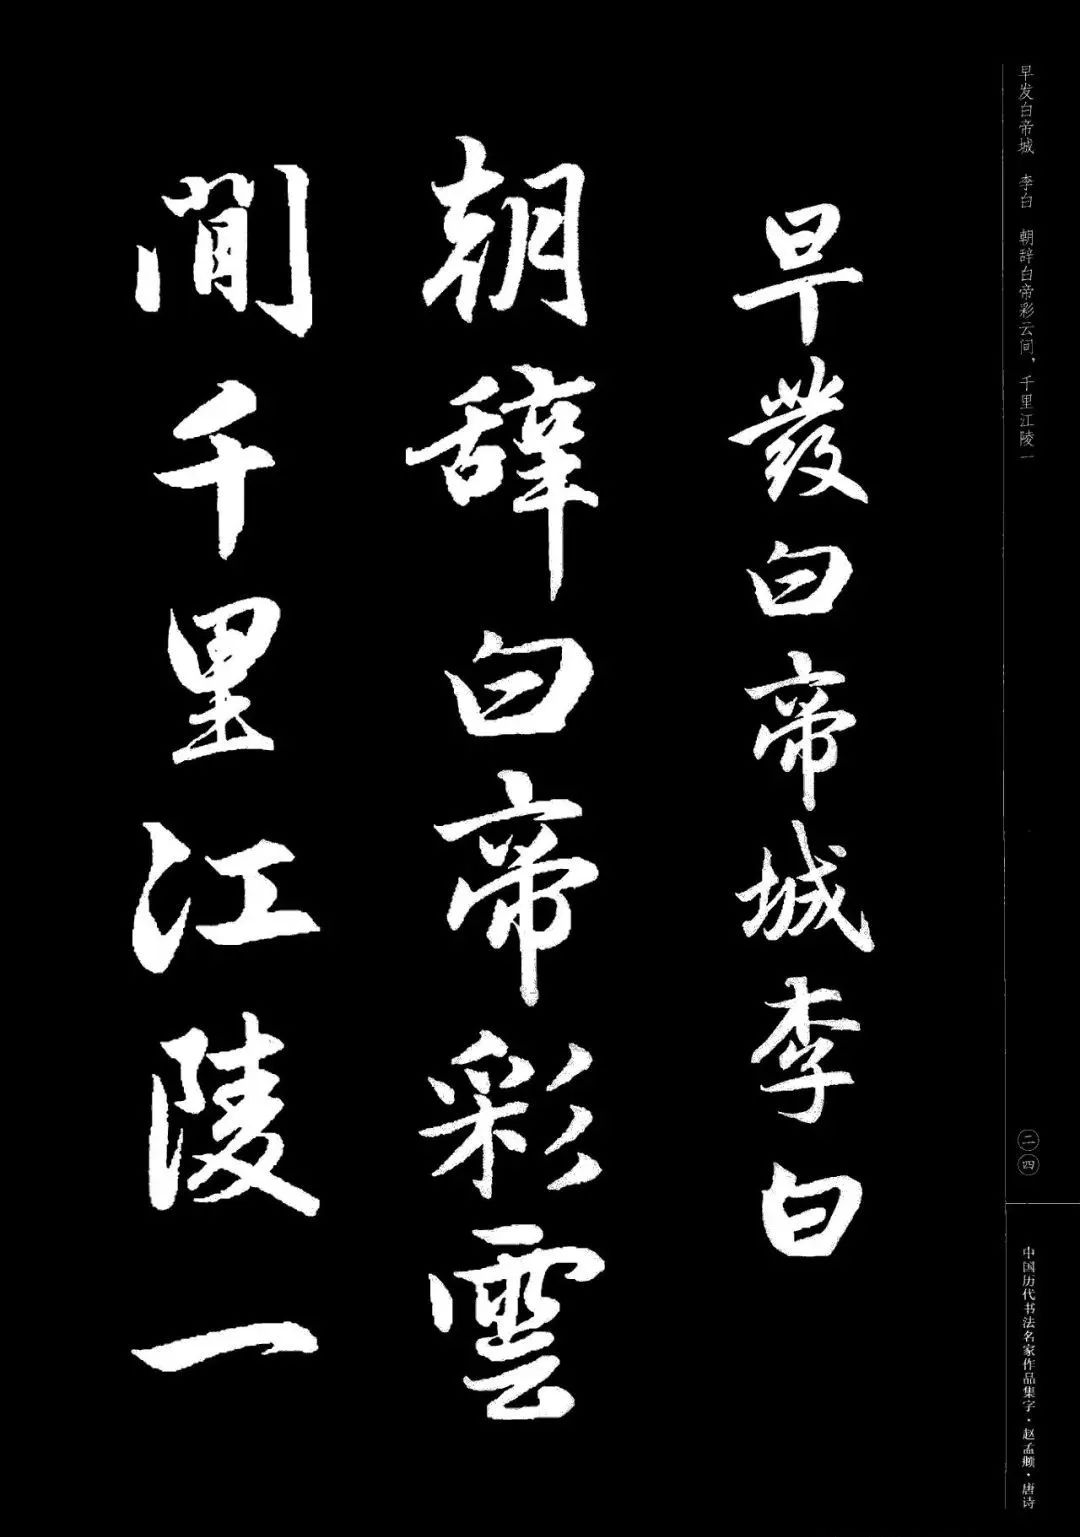 早发白帝城　李白　朝辞白帝彩云间，千里江陵一
早發白帝城李白
朝辭白帝彩雲
間千里江陵一
二四
中国历代书法名家作品集字·赵孟頫·唐诗